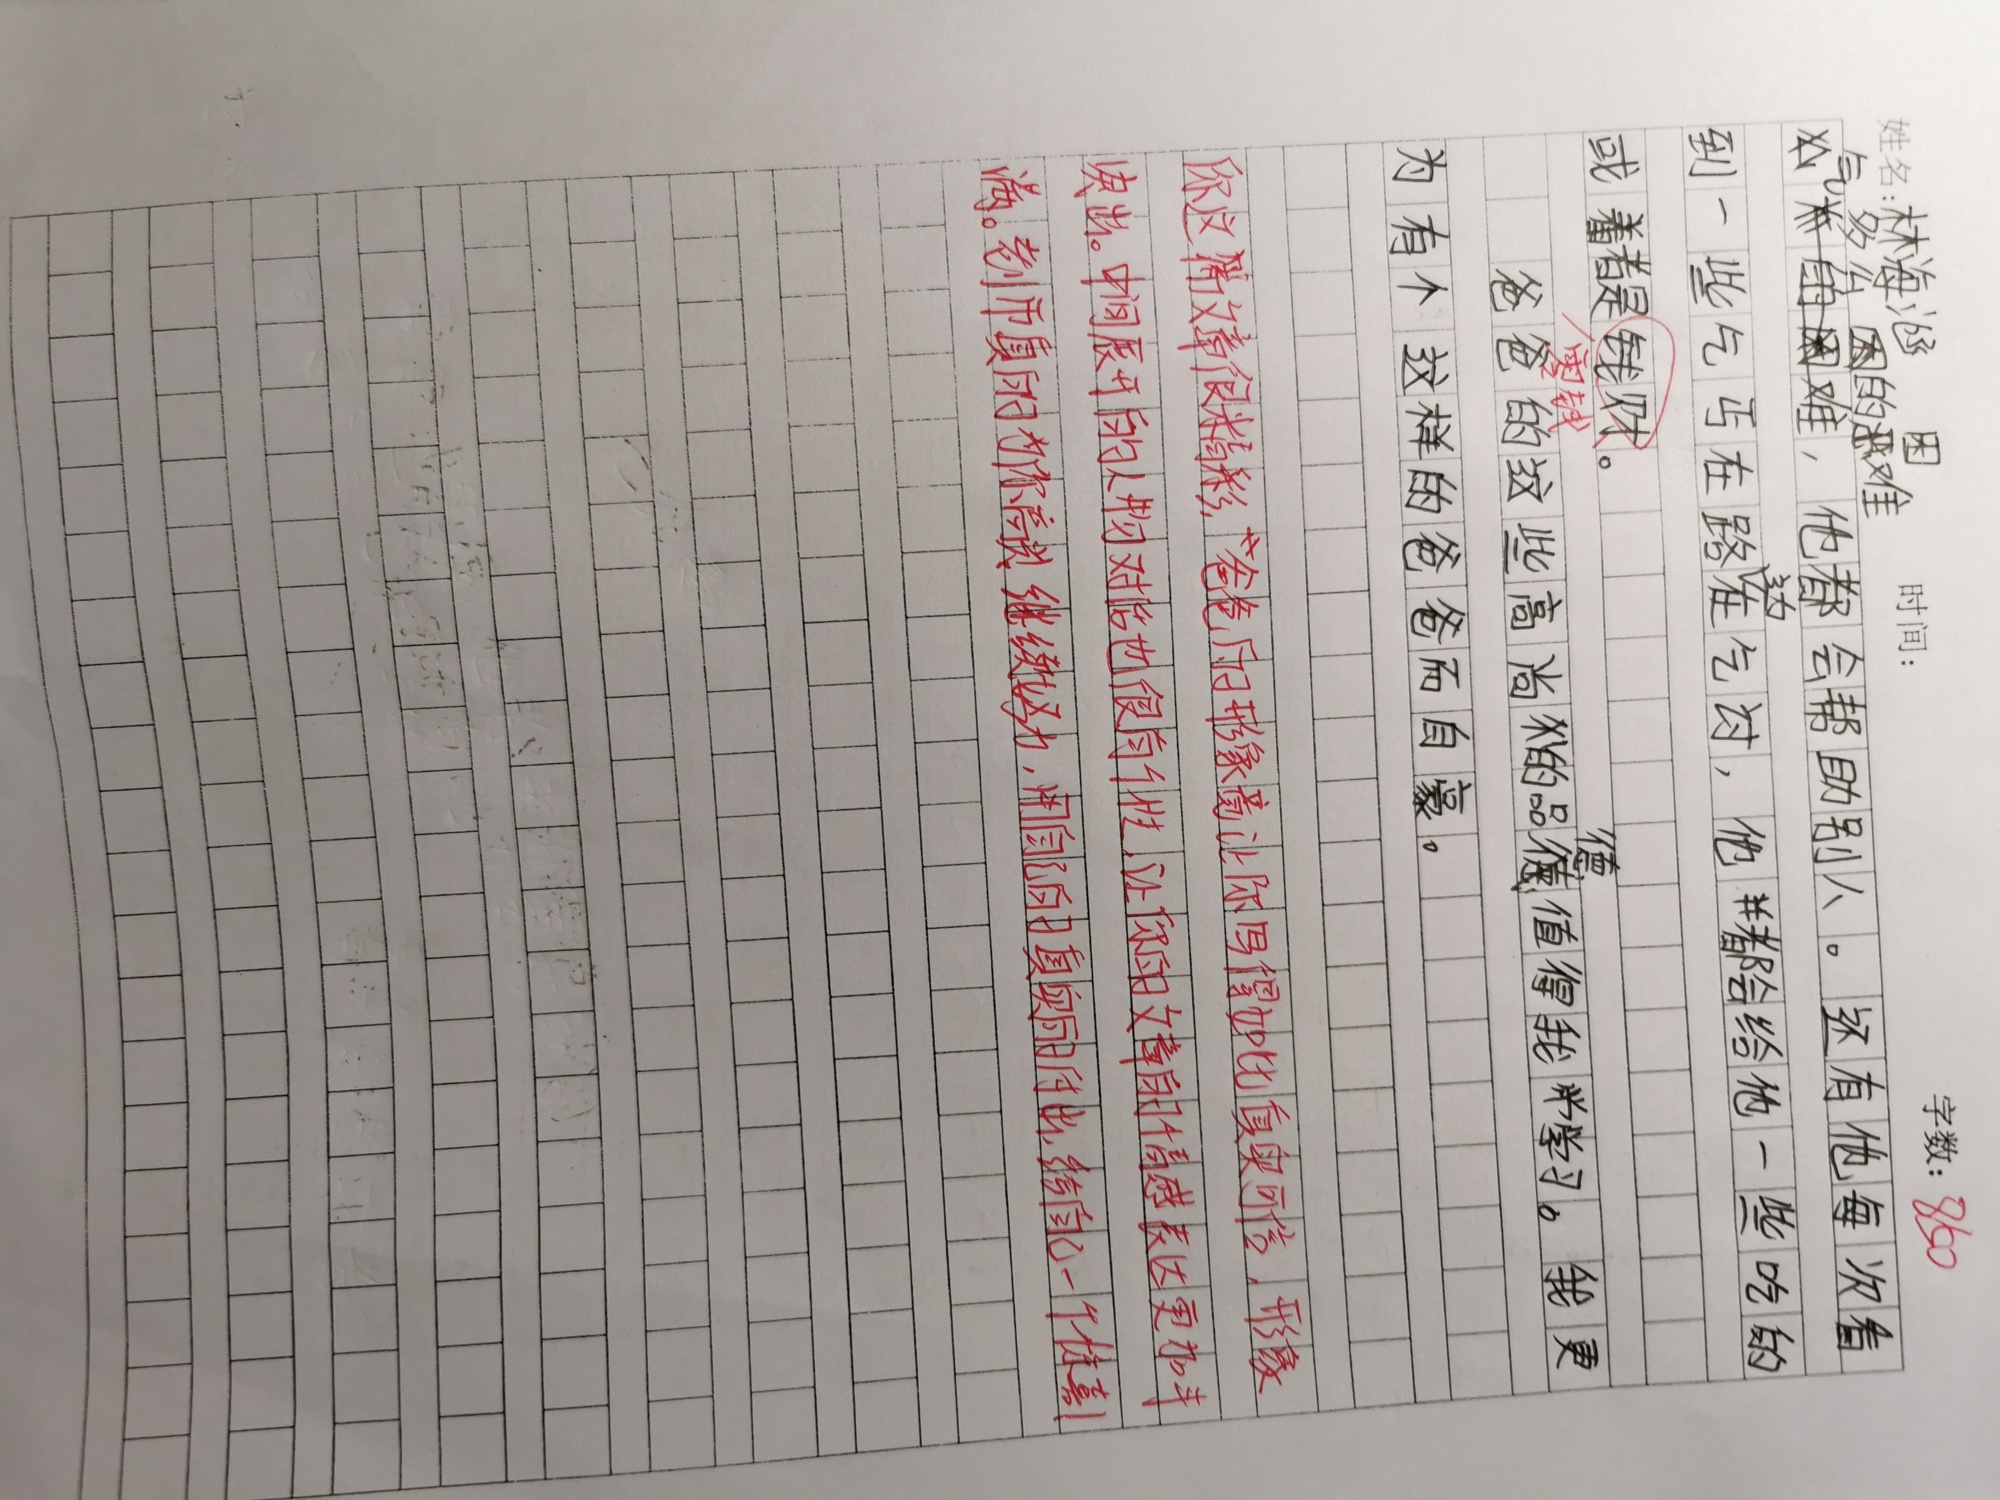 姓名:林海涵 时间: 字数: 860
多么困的困难
难,他都会帮助别人。还有他每次看
到一些乞丐在路边乞讨,他都会给他一些吃的
或者是钱财。
零钱
爸爸的这些高尚的品德值得我学习。我更
为有个这样的爸爸而自豪。
你这篇文章很精彩,“爸爸”的形象竟让你写得如此真实可信,形象
突出。中间展开的人物对话也很有个性,让你的文章的情感表达更加丰
满。老师真的为你高兴,继续努力,用自己的真实的付出,给自己一个惊喜!